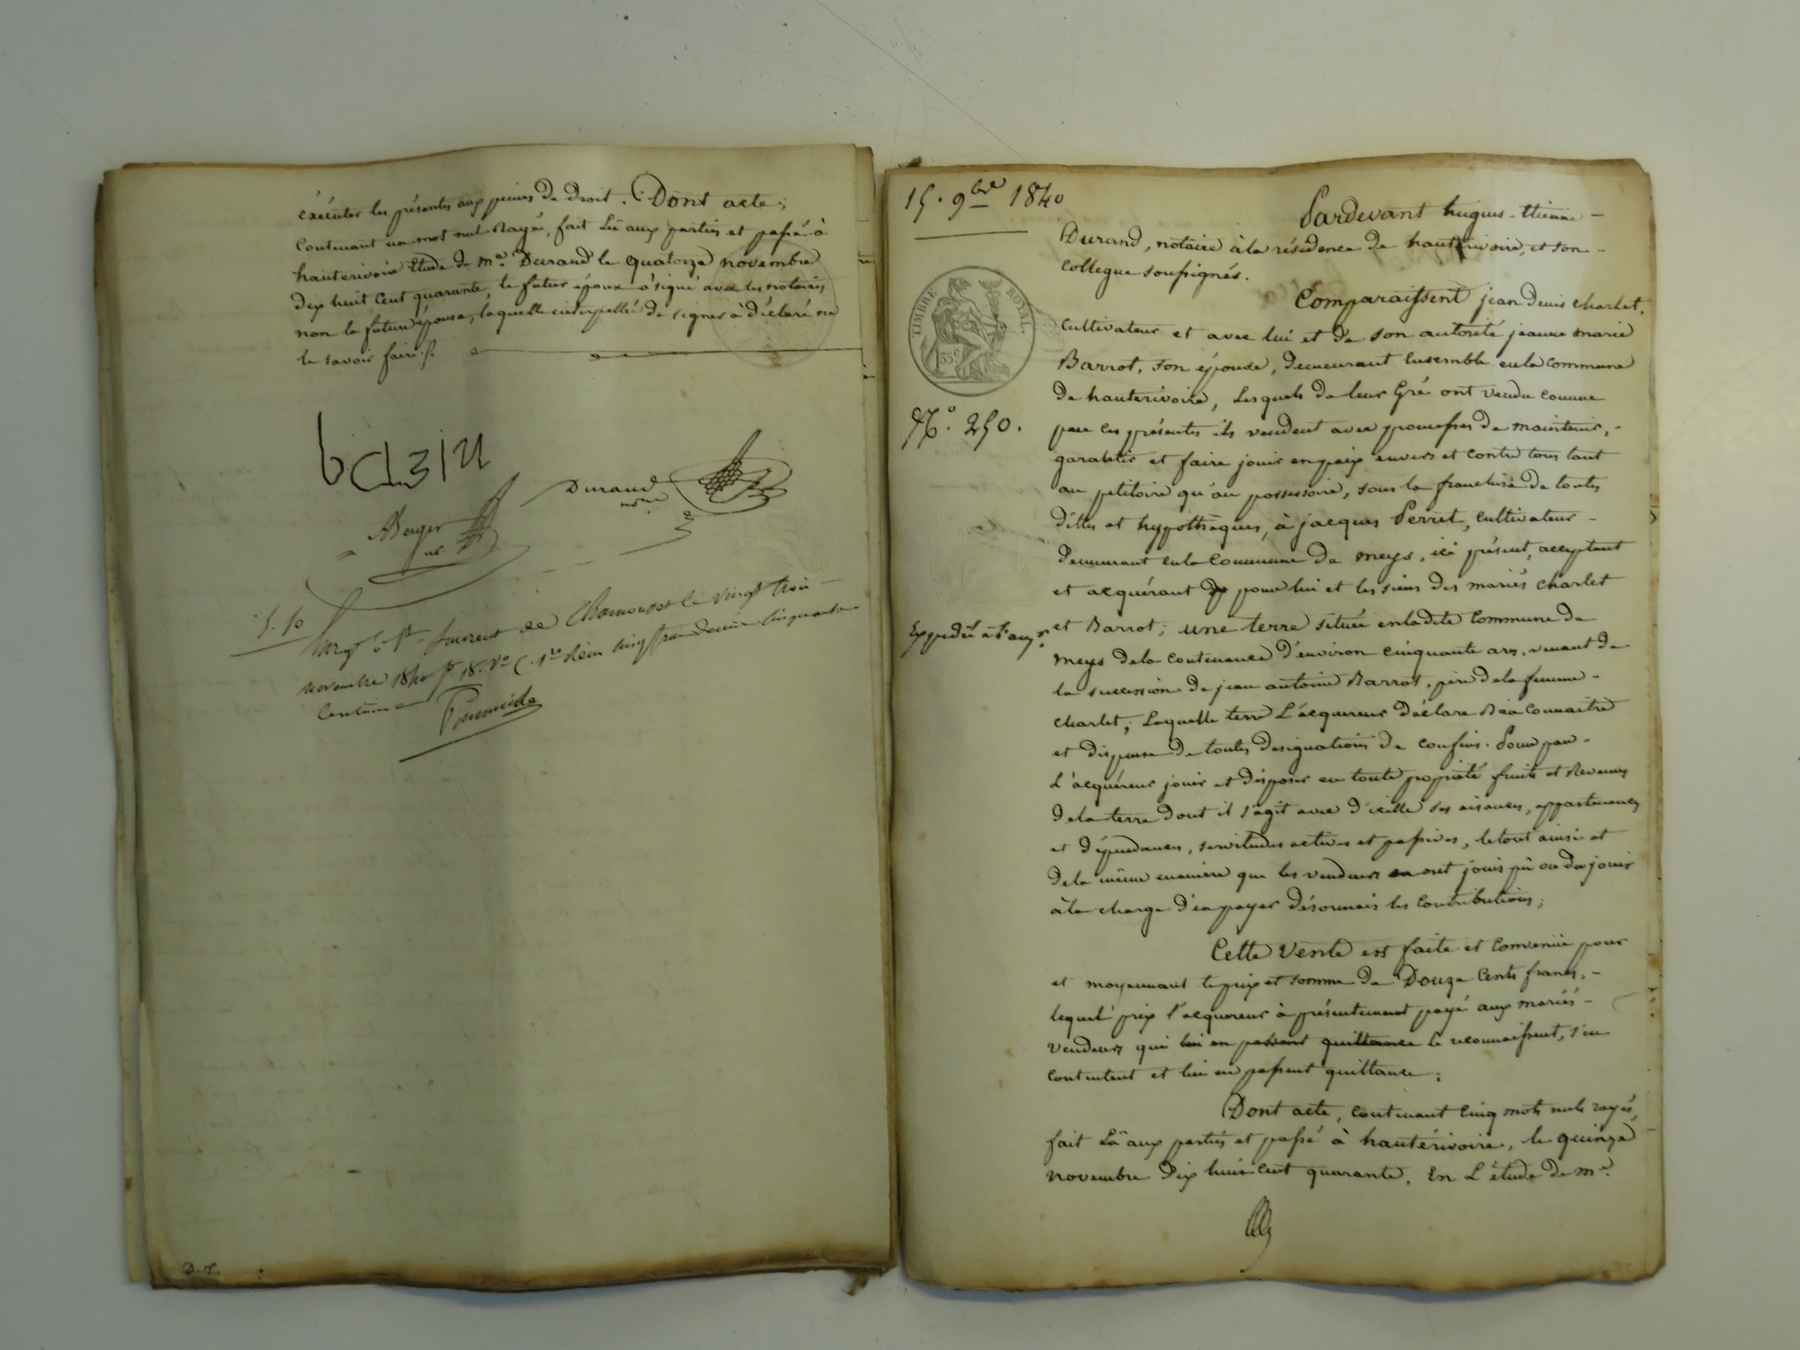 éxécuter les présentes aux peines de droit. Dont acte;
Contenant un mot nul Rayé, fait Lû aux parties et passé à
hauterivoire Etude de me. Durand le quatorze novembre
dix huit Cent quarante, le futur époux à signé avec les notaires
non la future épouse, laquelle interpellée de signer à déclaré ne
le savoir faire.
Durand
nore
ABerger
nr
5.50
Enregt. à St. Laurent de Chamousset le vingt trois
novembre 1840 f° 18. Vo C. 1re Reçu cinq francs decime cinquante
Centimes
15. 9bre 1840
Pardevant hugues-Etienne
Durand, notaire à la résidence de hauterivoire, et son
Collegue soussignés.
TIMBRE ROYAL.
35c
Comparaissent jean denis charlet,
Cultivateur et avec lui et de son autorité jeanne marie
Barrot, son épouse, demeurant Ensemble en la Commune
de hauterivoire, Lesquels de leur Gré ont vendu comme
No. 250.
par ces présentes ils vendent avec promesses de maintenir,
garantir et faire jouir en paix envers et contre tous tant
au pétitoire qu'au possessoire, sous la franchise de toutes
dettes et hypothèques, à jacques Perret, Cultivateur
demeurant en la Commune de meys, ici présent, acceptant
et acquérant pour lui et les siens des mariés charlet
Expédié à l'aqr.
et Barrot; une terre située en ladite Commune de
meys de la Contenance d'environ cinquante ares, venant de
la succession de jean antoine Barrot, père de la femme
charlet; Laquelle terre L'acquereur déclare Bien Connaitre
et dispense de toutes designations de confins. Pour par
L'acquéreur jouir et disposer en toute propriété fruits et Revenus
de la terre dont il s'agit avec d'icelle ses aisances, appartenances
et dépendances, servitudes actives et passives, le tout ainsi et
de la même manière que les vendeurs en ont joui pû ou dû jouir
à la charge d'en payer désormais les Contributions;
Cette Vente est faite et Convenue pour
et moyennant le prix et somme de Douze Cents francs,
lequel prix l'acquereur à présentement payé aux mariés
vendeurs qui lui en passent quittance le reconnaissent, s'en
contentent et lui en passent quittance;
Dont acte, contenant Cinq mots nuls rayés,
fait Lû aux parties et passé à hautérivoire, le quinze
novembre dix huit Cent quarante, En L'étude de me.